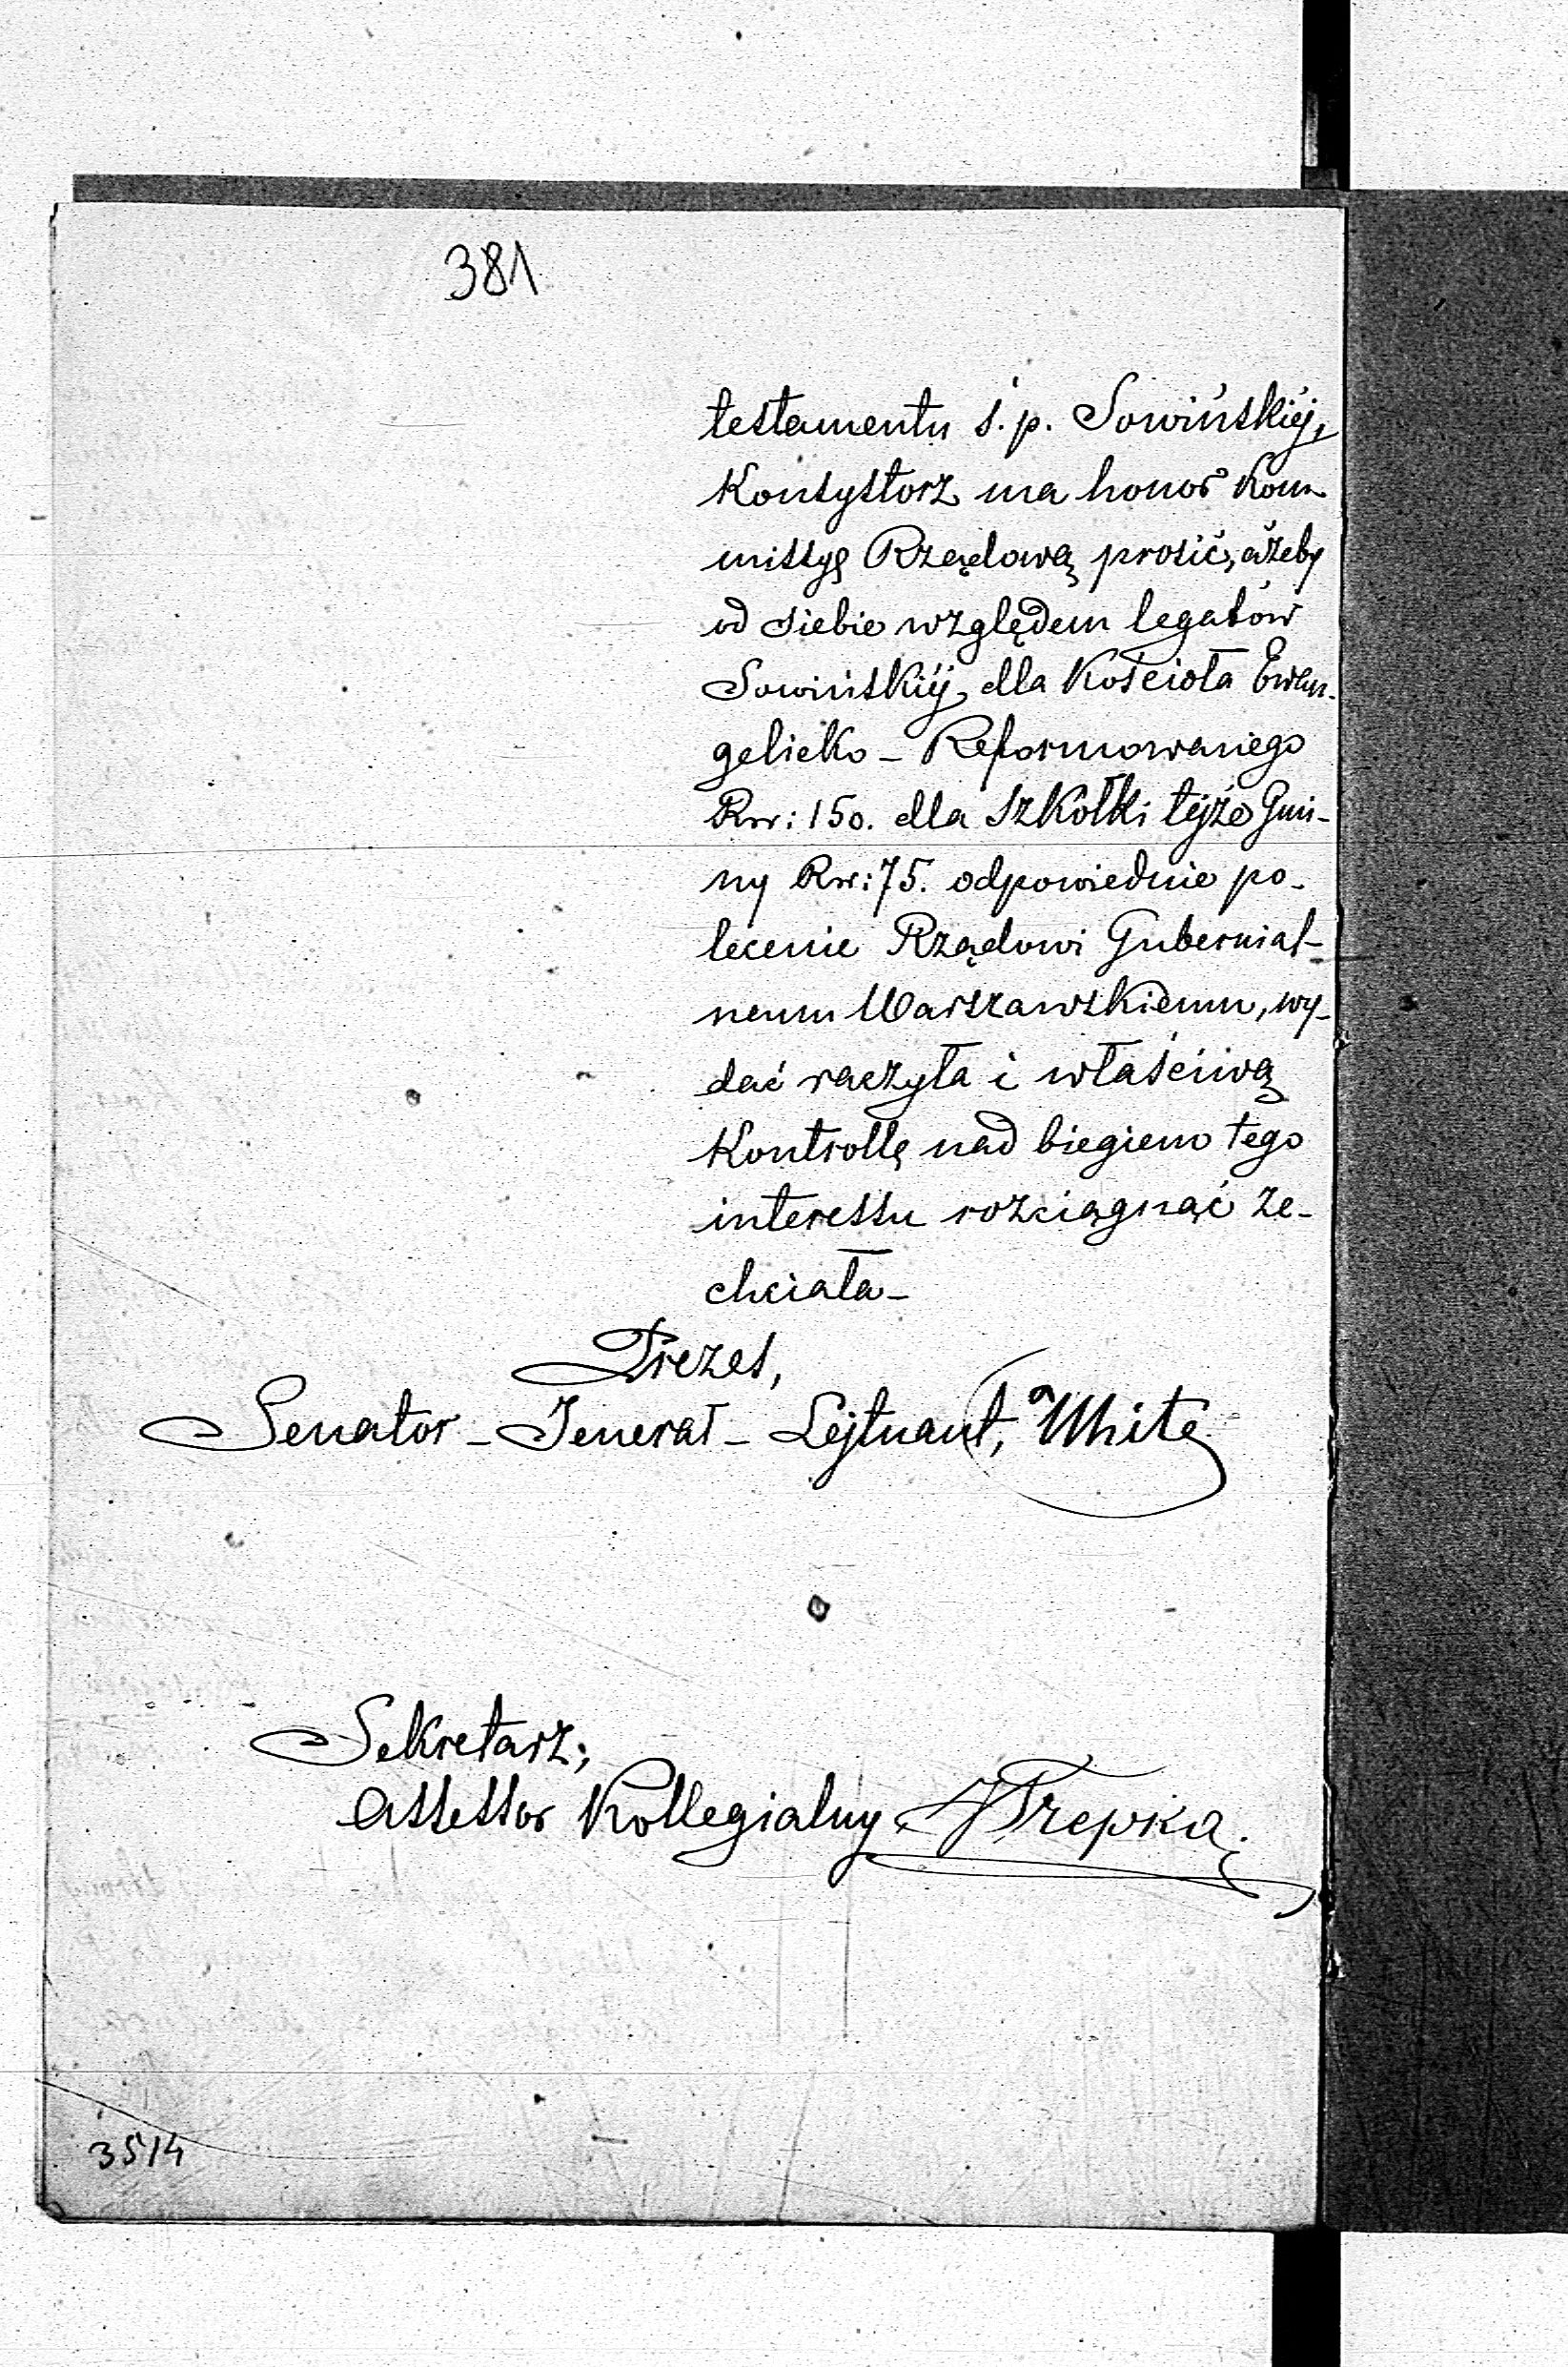 381
testamentu ś. p. Sowińskiéj,
Konsystorz ma honor Kom-
missyę Rządową prosić, ażeby
od siebie względem legatów
Sowińskiéj, dla Kościoła Ewan-
gelicko - Reformowanego
Rsr: 150. dla szkółki tejże Gmi-
ny Rsr: 75. odpowiednie po-
lecenie Rządowi Gubernial-
nemu Warszawskiemu, wy-
dać raczyła i właściwą
Kontrollę nad biegiem tego
interessu rozciągnąć ze-
chciała -
Prezes,
Senator - Jenerał - Lejtnant, White
Sekretarz,
Assessor Kollegialny JTrepka.
3514